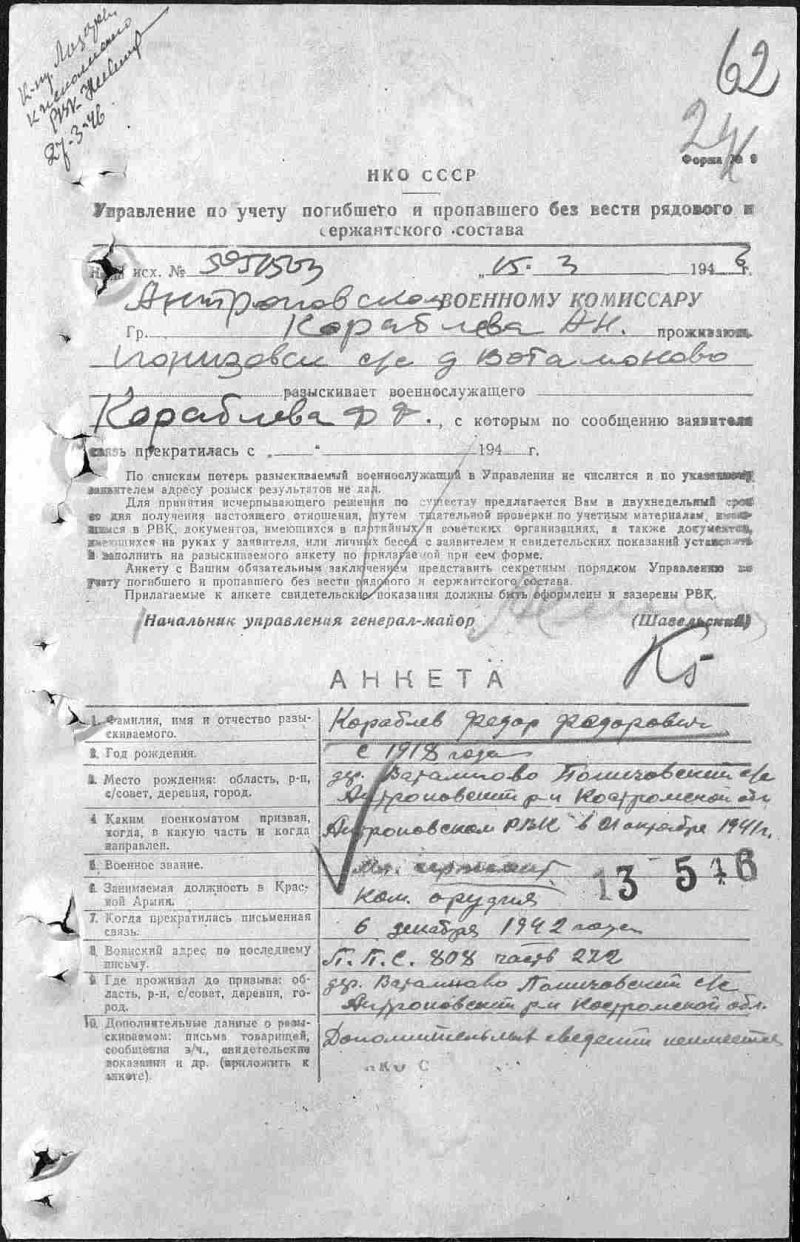 27-3-46
62
24
Форма № 9
НКО СССР
Управление по учету погибшего и пропавшего без вести рядового и
сержантского состава
исх. № „15. 3 1946 г.
Антроповском ВОЕННОМУ КОМИССАРУ
Гр. Кораблева А.Н. проживающ.
с/с д
разыскивает военнослужащего
Кораблева Ф Ф., с которым по сообщению заявителя
связь прекратилась с „ “ 194 г.
По спискам потерь разыскиваемый военнослужащий в Управлении не числится и по указанному
заявителем адресу розыск результатов не дал.
Для принятия исчерпывающего решения по существу предлагается Вам в двухнедельный срок
со дня получения настоящего отношения, путем тщательной проверки по учетным материалам, имею-
щимся в РВК, документов, имеющихся в партийных и советских организациях, а также документов,
имеющихся на руках у заявителя, или личных бесед с заявителем и свидетельских показаний установить
и заполнить на разыскиваемого анкету по прилагаемой при сем форме.
Анкету с Вашим обязательным заключением представить секретным порядком Управлению по
учету погибшего и пропавшего без вести рядового и сержантского состава.
Прилагаемые к анкете свидетельские показания должны быть оформлены и заверены РВК.
Начальник управления генерал-майор (Шавельский)
АНКЕТА
1. Фамилия, имя и отчество разы-
скиваемого.
Кораблев Федор Федорович
2. Год рождения.
с 1918 года
3. Место рождения: область, р-н,
с/совет, деревня, город.
дер. с/с
Антроповский р-н Костромской обл
4. Каким военкоматом призван,
когда, в какую часть и когда
направлен.
Антроповском РВК в октябре 1941 г.
5. Военное звание.
Мл. сержант
13 516
6. Занимаемая должность в Крас-
ной Армии.
Ком. орудия
7. Когда прекратилась письменная
связь.
6 декабря 1942 года
8. Воинский адрес по последнему
письму.
П.П.С. 808 часть 272
9. Где проживал до призыва: об-
ласть, р-н, с/совет, деревня, го-
род.
дер. с/с
Антроповский р-н Костромской обл.
10. Дополнительные данные о разы-
скиваемом: письма товарищей,
сообщения в/ч., свидетельские
показания и др. (приложить к
анкете).
Дополнительных сведений неимеется